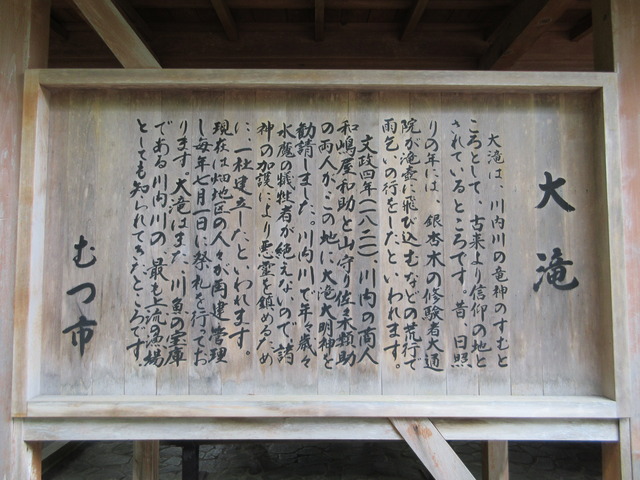 大滝
大滝は、川内川の竜神のすむと
ころとして、古来より信仰の地と
されているところです。昔、日照
りの年には、銀杏木の修験者大通
院が滝壺に飛び込むなどの荒行で
雨乞いの行をしたといわれます。
文政四年(一八二一)川内の商人
和嶋屋和助と山守り佐々木類助
の両人がこの地に大滝大明神を
勧請しました。川内川で年々歳々
水魔の犠牲者が絶えないので、諸
神の加護により悪霊を鎮めるため
に、一社建立したといわれます。
現在は畑地区の人々が再建管理
し毎年七月一日に祭礼を行ってお
ります。大滝はまた、川魚の宝庫
である川内川の最も上流の漁場
としても知られてきたところです。
むつ市